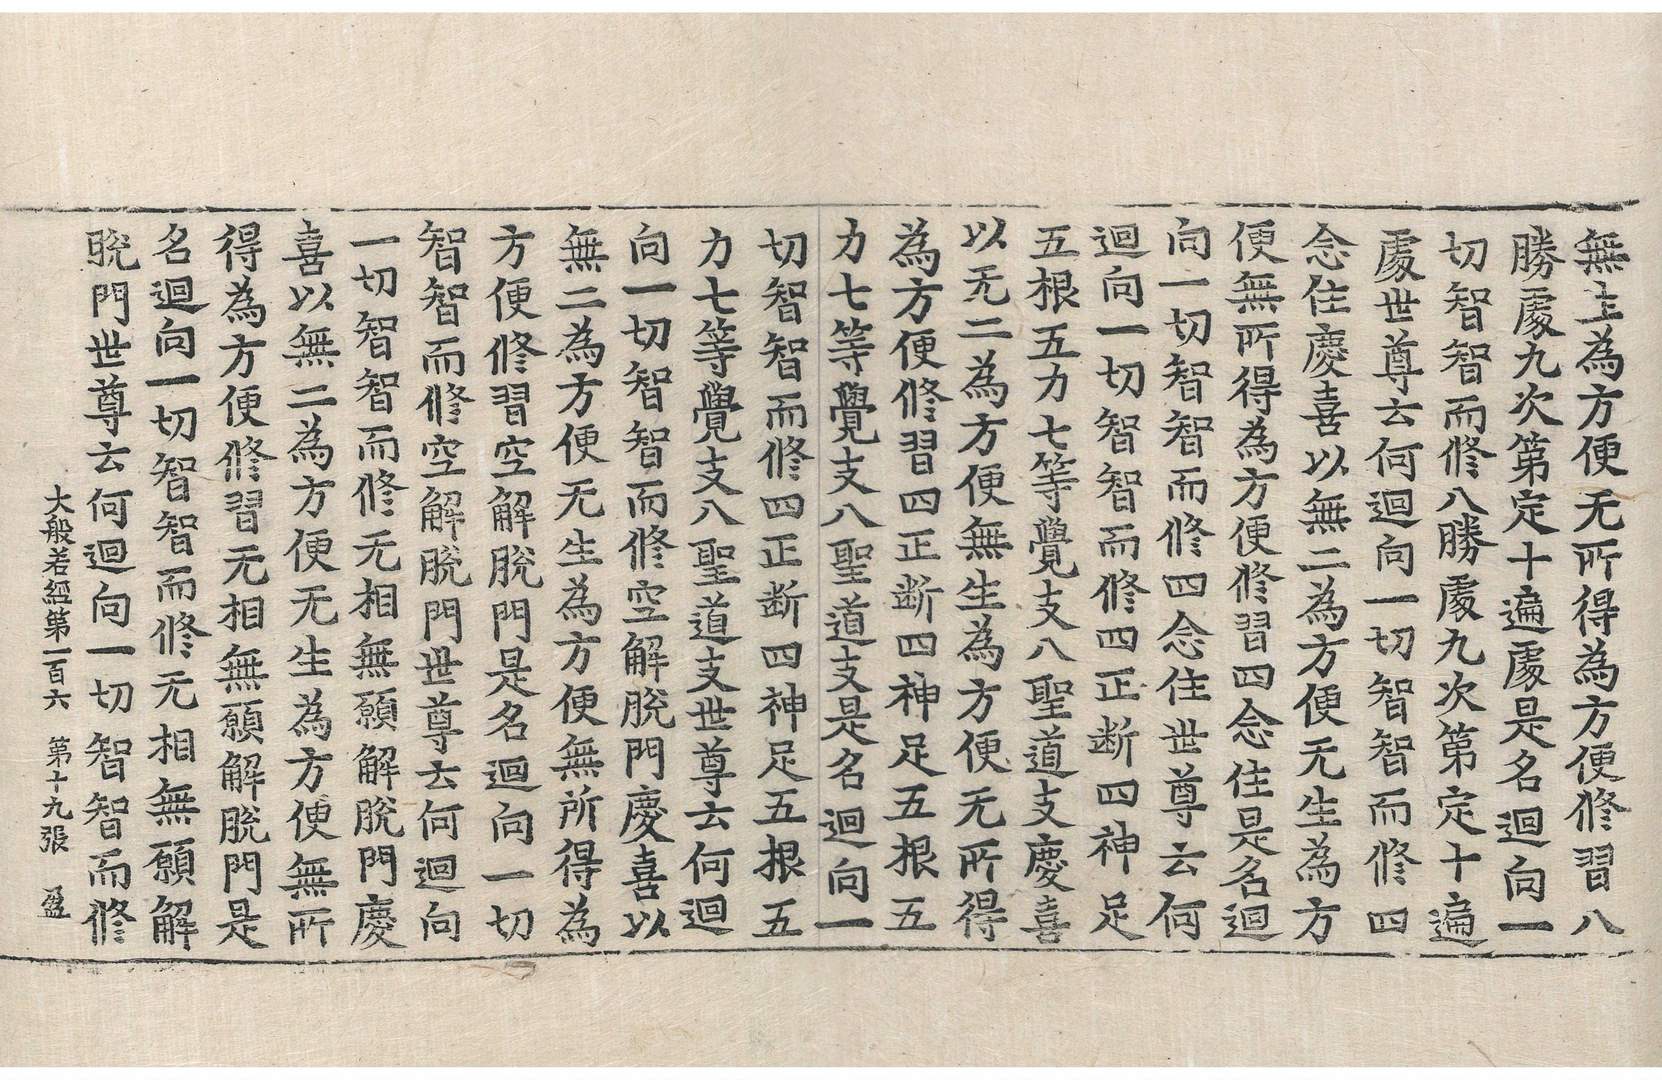 無生為方便无所得為方便修習八
勝處九次第定十遍處是名迴向一
切智智而修八勝處九次第定十遍
處世尊云何迴向一切智智而修四
念住慶喜以無二為方便无生為方
便無所得為方便修習四念住是名迴
向一切智智而修四念住世尊云何
迴向一切智智而修四正斷四神足
五根五力七等覺支八聖道支慶喜
以无二為方便無生為方便无所得
為方便修習四正斷四神足五根五
力七等覺支八聖道支是名迴向一
切智智而修四正斷四神足五根五
力七等覺支八聖道支世尊云何迴
向一切智智而修空解脫門慶喜以
無二為方便无生為方便無所得為
方便修習空解脫門是名迴向一切
智智而修空解脫門世尊云何迴向
一切智智而修无相無願解脫門慶
喜以無二為方便无生為方便無所
得為方便修習无相無願解脫門是
名迴向一切智智而修无相無願解
脫門世尊云何迴向一切智智而修
大般若經第一百六 第十九張 盈